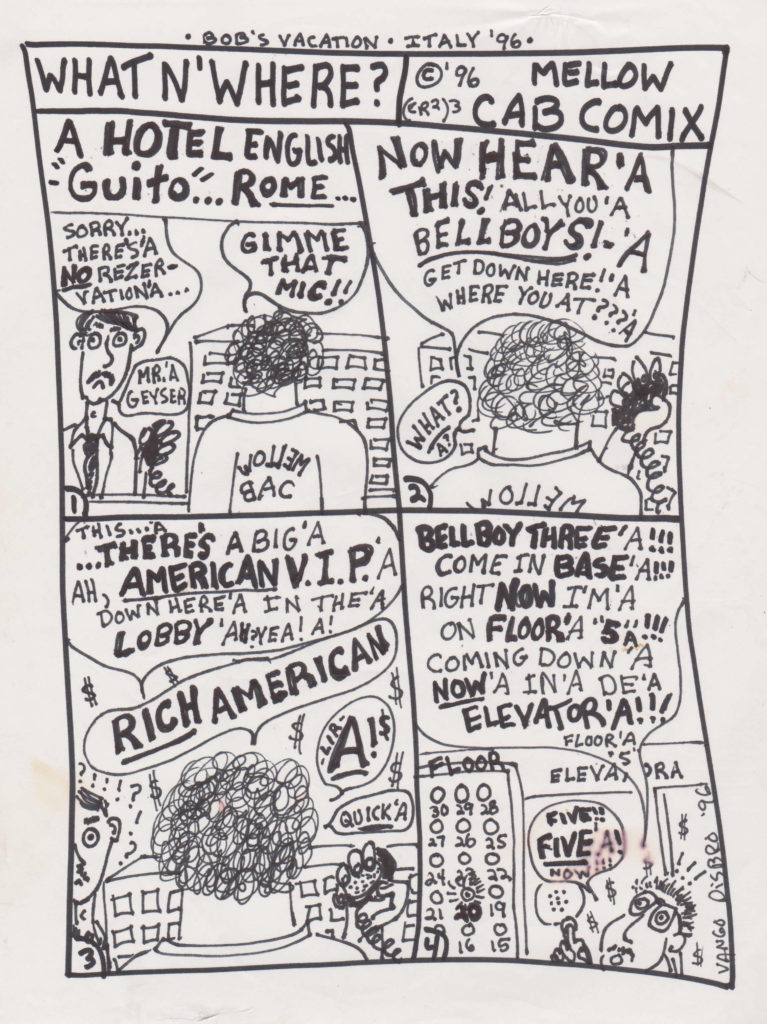 • BOB'S VACATION • ITALY '96 •
WHAT N' WHERE?
© '96 MELLOW
(CR2)3 CAB COMIX
A HOTEL ENGLISH
"Guito"... ROME...
SORRY...
THERE'S'A
NO REZER-
VATION'A...
GIMME
THAT
MIC!!
MR.'A
GEYSER
MELLOW
BAC
1
NOW HEAR'A
THIS! ALL YOU'A
BELLBOYS!-'A
GET DOWN HERE!'A
WHERE YOU AT???'A
WHAT?
A?
MELLOW
2
THIS...'A
...THERE'S A BIG'A
AH, AMERICAN V.I.P.'A
DOWN HERE'A IN THE'A
LOBBY 'A! YEA! A!
RICH AMERICAN
LIR-
A!$
QUICK'A
3
BELLBOY THREE'A!!!
COME IN BASE'A!!!
RIGHT NOW I'M'A
ON FLOOR'A "5"A!!!
COMING DOWN'A
NOW'A IN'A DE'A
ELEVATOR'A!!!
FLOOR'A
"5"
FLOOR
ELEVATORA
30 29 28
27 26 25
24 23 22
21 20 19
16 15
FIVE!!
FIVE A!
NOW
4
VANGO DISBRO '96